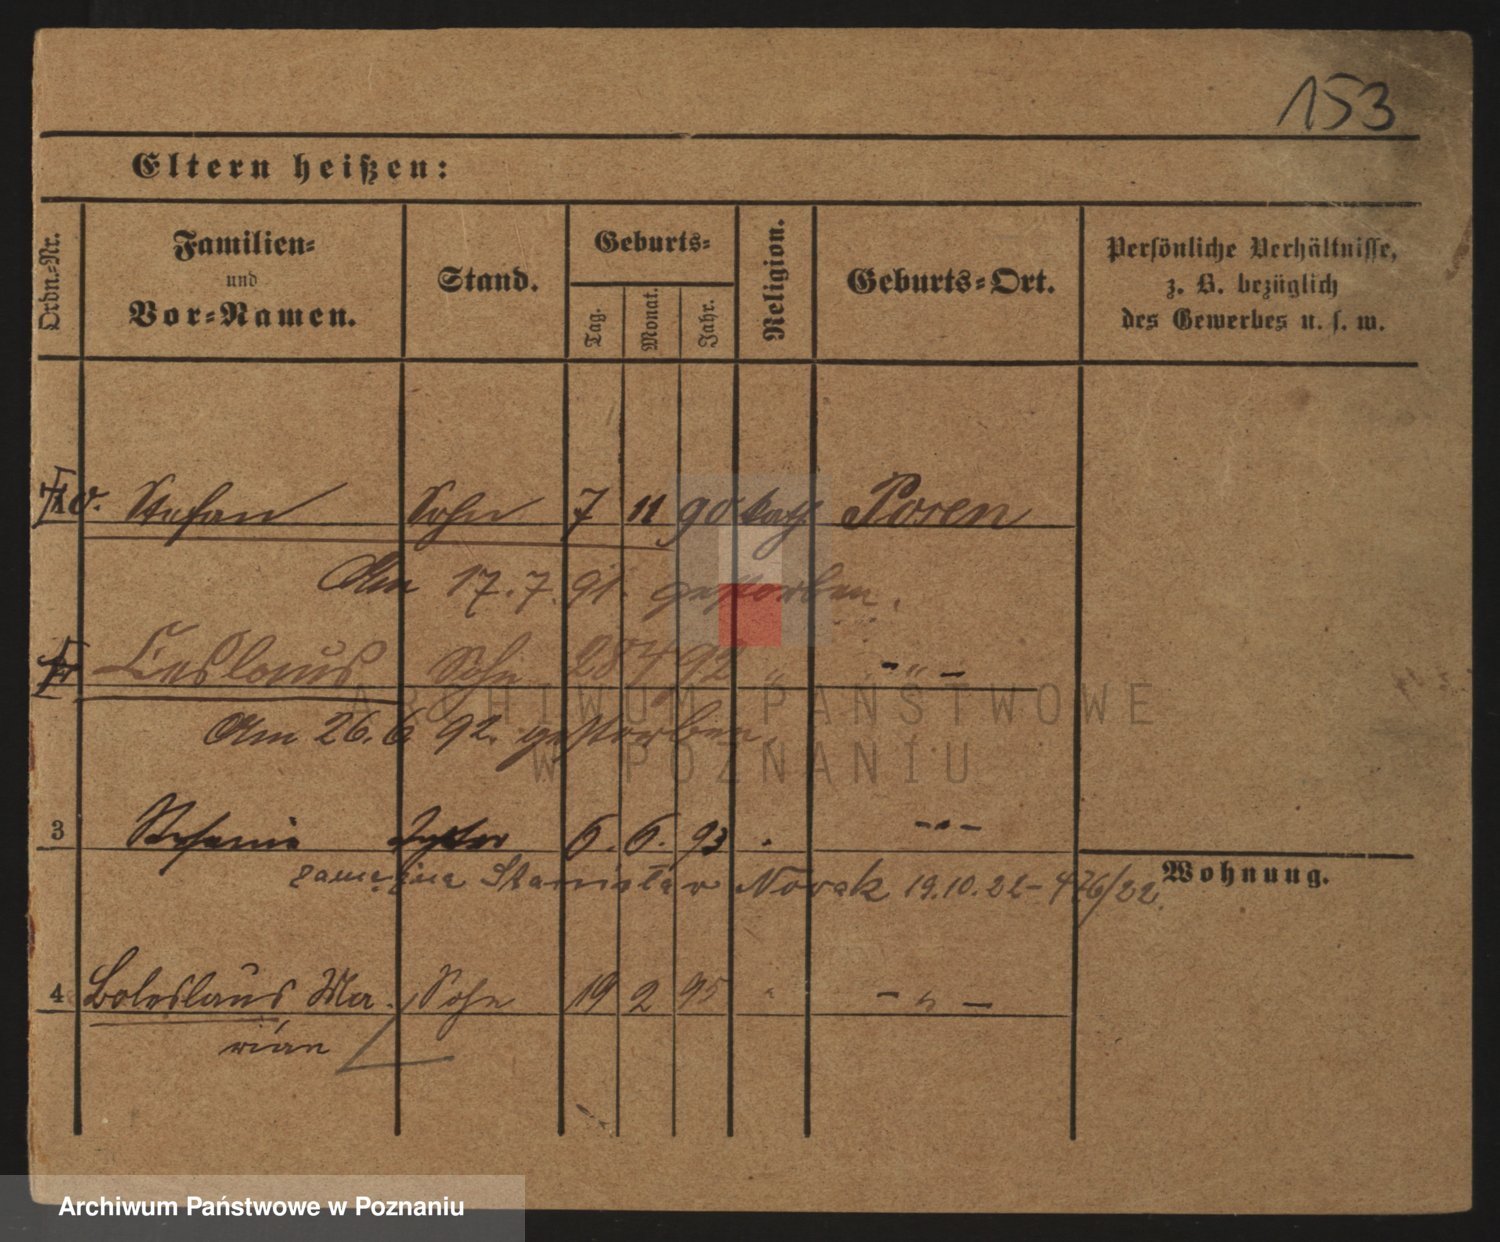 153
Eltern heißen:
Ordn.-Nr.
Familien-
und
Vor-Namen.
Stand.
Geburts-
Tag.
Monat.
Jahr.
Religion.
Geburts-Ort.
Persönliche Verhältnisse,
z. B. bezüglich
des Gewerbes u. s. w.
Stefan Sohn 7 11 90 kath Posen
Am 17. 7. 91. gestorben.
Ceslaus Sohn 28 4 92 " - " -
Am 26. 6 92. gestorben.
ARCHIWUM PAŃSTWOWE
W POZNANIU
3 Stefania 6. 6. 93 - " -
zamężna Stanisław Nowak 19.10.22 - 476/22.
Wohnung.
4 Boleslaus Ma- Sohn 19 2 95 " - " -
rian
Archiwum Państwowe w Poznaniu